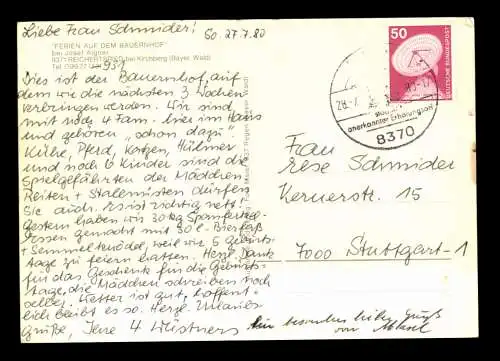 Liebe Frau Schmider! So. 27.7.80
"FERIEN AUF DEM BAUERNHOF"
bei Josef Aigner
8371 REICHERTSRIED bei Kirchberg (Bayer. Wald)
Tel. 931
Dies ist der Bauernhof, auf
dem wir die nächsten 3 Wochen
verbringen werden. Wir sind
mit noch 4 Fam. hier im Haus
und gehören "schon dazu".
Kühe, Pferd, Katzen, Hühner
und noch 6 Kinder sind die
Spielgefährten der Mädchen
Reiten + Stallmisten dürfen
Sie auch. Es ist richtig nett!
Gestern haben wir 30 kg Spanferkel-
essen gemacht mit 30 l - Bierfaß
+ Semmelknödel, weil wir 5 Geburts-
tage zu feiern hatten. Herzl. Dank
für das Geschenk für die Geburts-
tage, die Mädchen schreiben noch
selber. Wetter ist gut, hoffent-
lich bleibt es so. Herzl. Urlaubs
grüße, Ihre 4 Wüstners
Ein besonders lieber Gruß
von
50
DEUTSCHE BUNDESPOST
anerkannter Erholungsort
8370
Frau
Schmider
Kernerstr. 15
7000 Stuttgart-1